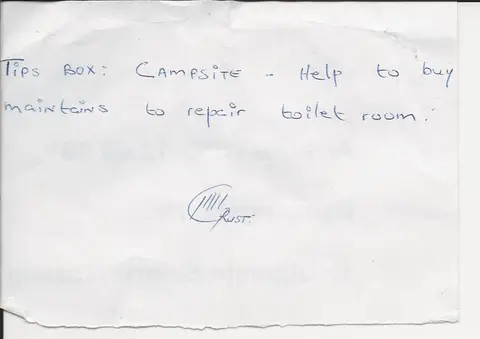 TIPS BOX: CAMPSITE - Help to buy
maintains to repair toilet room.